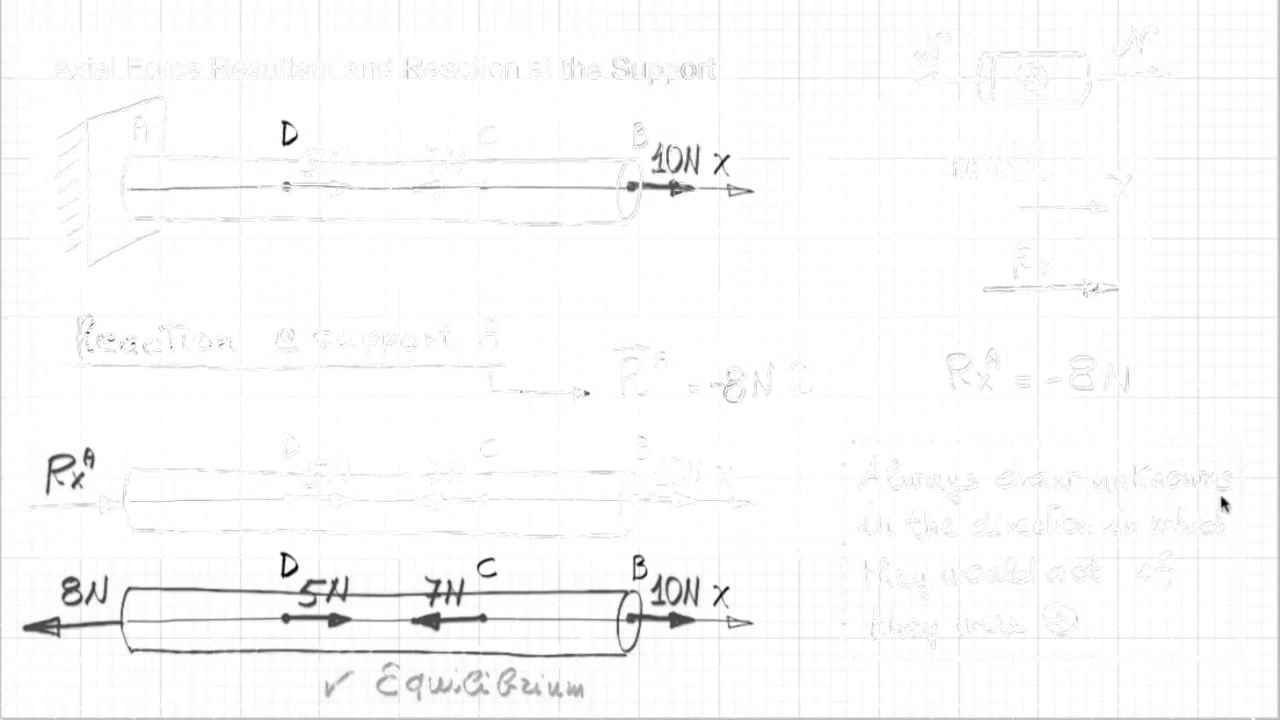 Axial Force Resultant and Reaction at the Support
N N
A D 5N 7N C B 10N x
x
Rx
Reaction @ support A
R^A = -8N î
Rx^A = -8N
Rx^A D 5N 7N C B 10N x
Always draw unknowns
in the direction in which
they would act if
they were ⊕
8N D 5N 7N C B 10N x
✓ Equilibrium